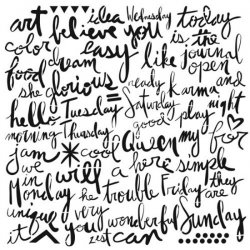 art idea Wednesday today
color believe you is the
dream easy like journal
food open
she glorious ready karma and
hello Tuesday Saturday play night
morning Thursday good for
jam cool Queen my
we in will a here simple
Monday he trouble Friday they
are
unique very wonderful Sunday
it you zest can